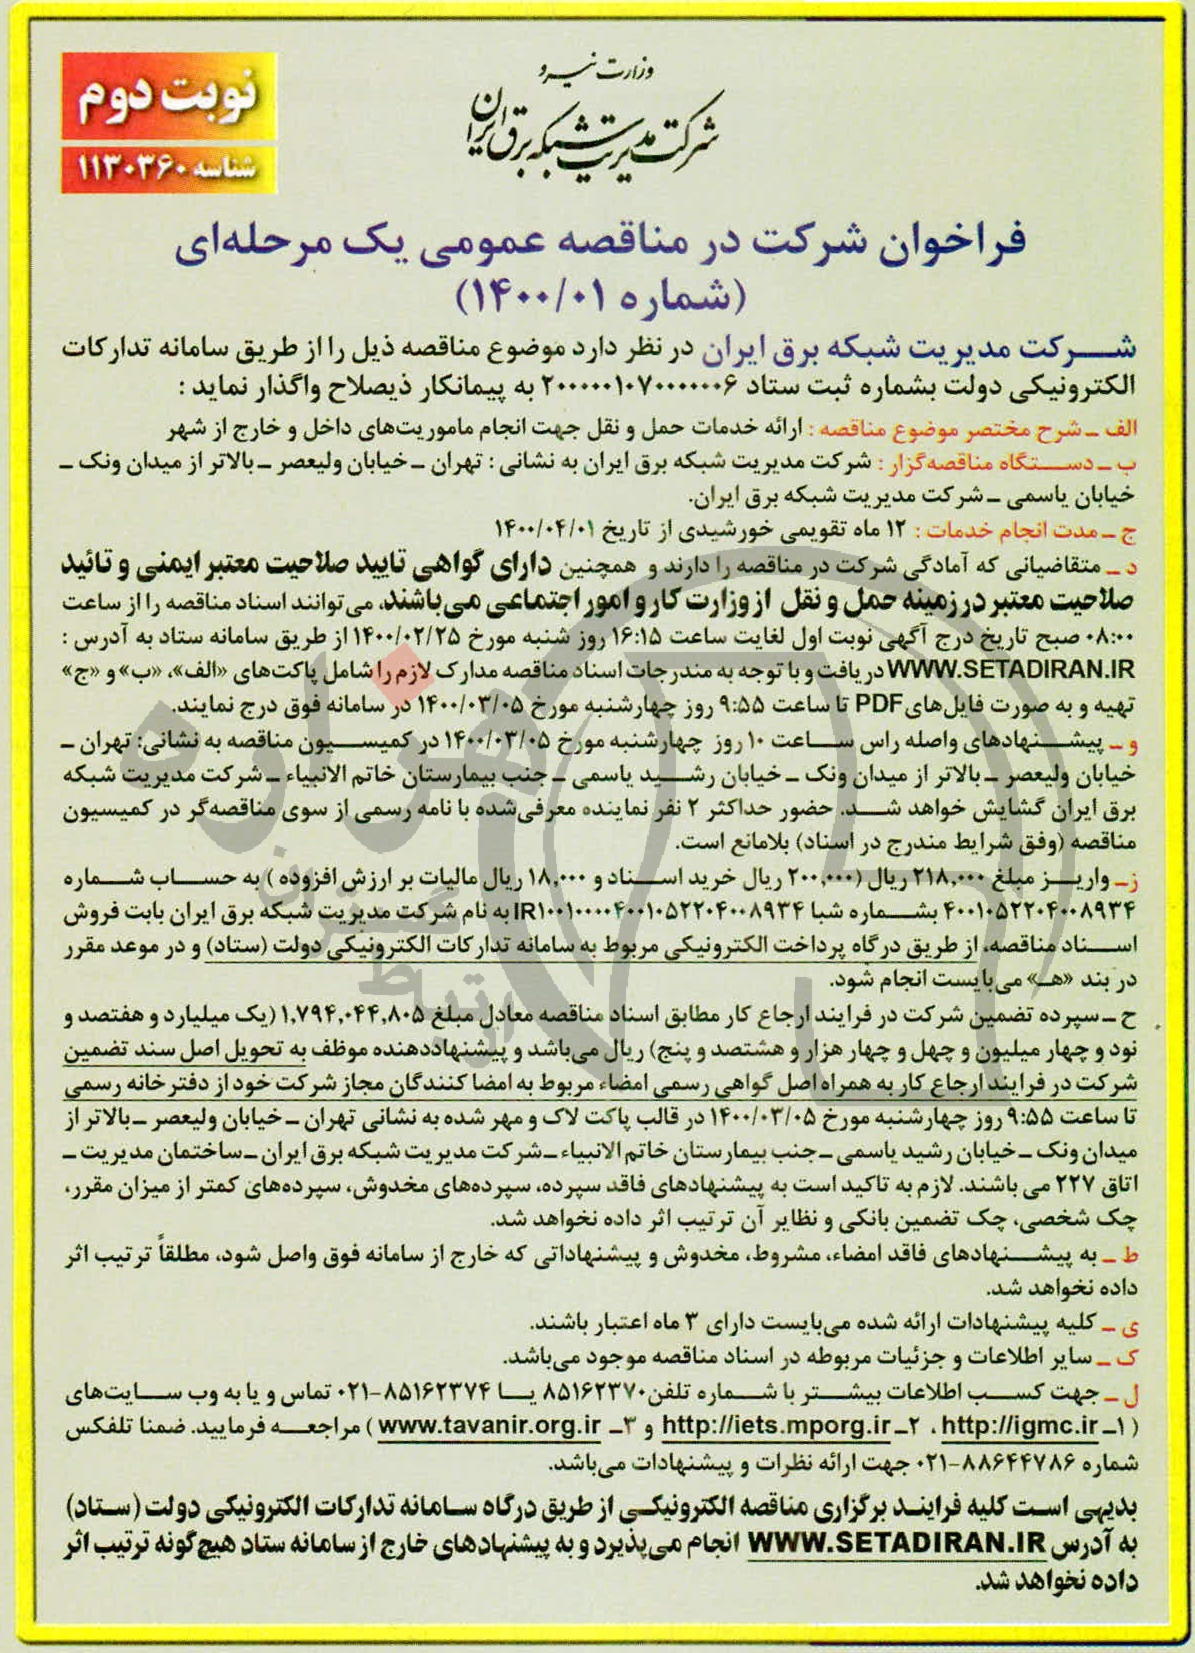 وزارت نیرو
شرکت مدیریت شبکه برق ایران
نوبت دوم
شناسه ۱۱۳۰۳۶۰
فراخوان شرکت در مناقصه عمومی یک مرحله‌ای
(شماره ۱۴۰۰/۰۱)
شرکت مدیریت شبکه برق ایران در نظر دارد موضوع مناقصه ذیل را از طریق سامانه تدارکات
الکترونیکی دولت بشماره ثبت ستاد ۲۰۰۰۰۰۱۰۷۰۰۰۰۰۰۶ به پیمانکار ذیصلاح واگذار نماید :
الف ـ شرح مختصر موضوع مناقصه : ارائه خدمات حمل و نقل جهت انجام ماموریت‌های داخل و خارج از شهر
ب ـ دستگاه مناقصه‌گزار : شرکت مدیریت شبکه برق ایران به نشانی : تهران ـ خیابان ولیعصر ـ بالاتر از میدان ونک ـ
خیابان یاسمی ـ شرکت مدیریت شبکه برق ایران.
ج ـ مدت انجام خدمات : ۱۲ ماه تقویمی خورشیدی از تاریخ ۱۴۰۰/۰۴/۰۱
د ـ متقاضیانی که آمادگی شرکت در مناقصه را دارند و همچنین دارای گواهی تایید صلاحیت معتبر ایمنی و تائید
صلاحیت معتبر در زمینه حمل و نقل از وزارت کار و امور اجتماعی می‌باشند، می‌توانند اسناد مناقصه را از ساعت
۰۸:۰۰ صبح تاریخ درج آگهی نوبت اول لغایت ساعت ۱۶:۱۵ روز شنبه مورخ ۱۴۰۰/۰۲/۲۵ از طریق سامانه ستاد به آدرس :
WWW.SETADIRAN.IR دریافت و با توجه به مندرجات اسناد مناقصه مدارک لازم را شامل پاکت‌های «الف»، «ب» و «ج»
تهیه و به صورت فایل‌های PDF تا ساعت ۹:۵۵ روز چهارشنبه مورخ ۱۴۰۰/۰۳/۰۵ در سامانه فوق درج نمایند.
و ـ پیشنهادهای واصله راس ساعت ۱۰ روز چهارشنبه مورخ ۱۴۰۰/۰۳/۰۵ در کمیسیون مناقصه به نشانی: تهران ـ
خیابان ولیعصر ـ بالاتر از میدان ونک ـ خیابان رشید یاسمی ـ جنب بیمارستان خاتم الانبیاء ـ شرکت مدیریت شبکه
برق ایران گشایش خواهد شد. حضور حداکثر ۲ نفر نماینده معرفی‌شده با نامه رسمی از سوی مناقصه‌گر در کمیسیون
مناقصه (وفق شرایط مندرج در اسناد) بلامانع است.
ز ـ واریز مبلغ ۲۱۸,۰۰۰ ریال (۲۰۰,۰۰۰ ریال خرید اسناد و ۱۸,۰۰۰ ریال مالیات بر ارزش افزوده ) به حساب شماره
۴۰۰۱۰۵۲۲۰۴۰۰۸۹۳۴ بشماره شبا IR۱۰۰۱۰۰۰۰۴۰۰۱۰۵۲۲۰۴۰۰۸۹۳۴ به نام شرکت مدیریت شبکه برق ایران بابت فروش
اسناد مناقصه، از طریق درگاه پرداخت الکترونیکی مربوط به سامانه تدارکات الکترونیکی دولت (ستاد) و در موعد مقرر
در بند «هـ» می‌بایست انجام شود.
ح ـ سپرده تضمین شرکت در فرایند ارجاع کار مطابق اسناد مناقصه معادل مبلغ ۱,۷۹۴,۰۴۴,۸۰۵ (یک میلیارد و هفتصد و
نود و چهار میلیون و چهل و چهار هزار و هشتصد و پنج) ریال می‌باشد و پیشنهاددهنده موظف به تحویل اصل سند تضمین
شرکت در فرایند ارجاع کار به همراه اصل گواهی رسمی امضاء مربوط به امضا کنندگان مجاز شرکت خود از دفترخانه رسمی
تا ساعت ۹:۵۵ روز چهارشنبه مورخ ۱۴۰۰/۰۳/۰۵ در قالب پاکت لاک و مهر شده به نشانی تهران ـ خیابان ولیعصر ـ بالاتر از
میدان ونک ـ خیابان رشید یاسمی ـ جنب بیمارستان خاتم الانبیاء ـ شرکت مدیریت شبکه برق ایران ـ ساختمان مدیریت ـ
اتاق ۲۲۷ می باشند. لازم به تاکید است به پیشنهادهای فاقد سپرده، سپرده‌های مخدوش، سپرده‌های کمتر از میزان مقرر،
چک شخصی، چک تضمین بانکی و نظایر آن ترتیب اثر داده نخواهد شد.
ط ـ به پیشنهادهای فاقد امضاء، مشروط، مخدوش و پیشنهاداتی که خارج از سامانه فوق واصل شود، مطلقاً ترتیب اثر
داده نخواهد شد.
ی ـ کلیه پیشنهادات ارائه شده می‌بایست دارای ۳ ماه اعتبار باشند.
ک ـ سایر اطلاعات و جزئیات مربوطه در اسناد مناقصه موجود می‌باشد.
ل ـ جهت کسب اطلاعات بیشتر با شماره تلفن ۸۵۱۶۲۳۷۰ یا ۸۵۱۶۲۳۷۴-۰۲۱ تماس و یا به وب سایت‌های
( ۱ـ http://igmc.ir ، ۲ـ http://iets.mporg.ir و ۳ـ www.tavanir.org.ir ) مراجعه فرمایید. ضمنا تلفکس
شماره ۸۸۶۴۴۷۸۶-۰۲۱ جهت ارائه نظرات و پیشنهادات می‌باشد.
بدیهی است کلیه فرایند برگزاری مناقصه الکترونیکی از طریق درگاه سامانه تدارکات الکترونیکی دولت (ستاد)
به آدرس WWW.SETADIRAN.IR انجام می‌پذیرد و به پیشنهادهای خارج از سامانه ستاد هیچ‌گونه ترتیب اثر
داده نخواهد شد.